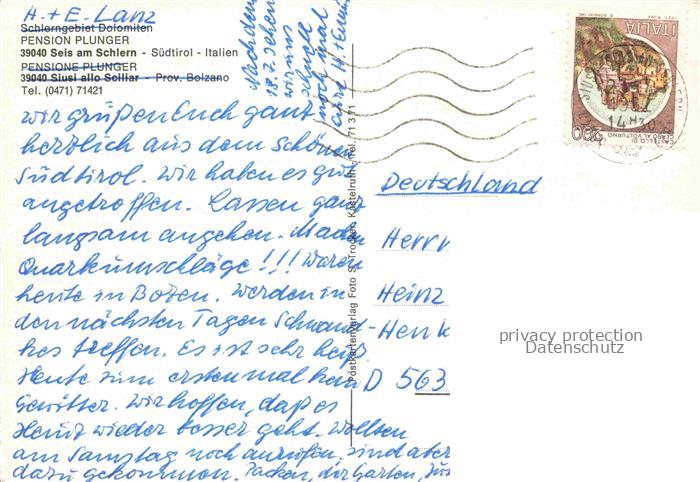 H.+E. Lanz
Schlerngebiet Dolomiten
PENSION PLUNGER
39040 Seis am Schlern - Südtirol - Italien
PENSIONE PLUNGER
39040 Siusi allo Sciliar - Prov. Bolzano
Tel. (0471) 71421
wir grüßen Euch ganz
herzlich aus dem schönen
Südtirol. Wir haben es gut
angetroffen. Lassen ganz
langsam angehen. Machen
Quarkumschläge!!! Waren
heute in Bozen. Werden in
den nächsten Tagen
treffen. Es ist sehr heiß.
Heute zum erstenmal kein
Gewitter. Wir hoffen, daß es
Heinz wieder besser geht. Wollten
am Samstag noch anrufen, sind aber
dazu gekommen. Packen, der Garten,
Nach dem
18.7. sehen
wir uns
noch mal
Eure H+E
Postkartenverlag Foto S. Trocker, Kastelruth, Tel. 71 3 71
ITALIA
200
CASTELLO DI
CERRO AL VOLTURNO
Deutschland
Herrn
Heinz
Henk
D 563
privacy protection
Datenschutz